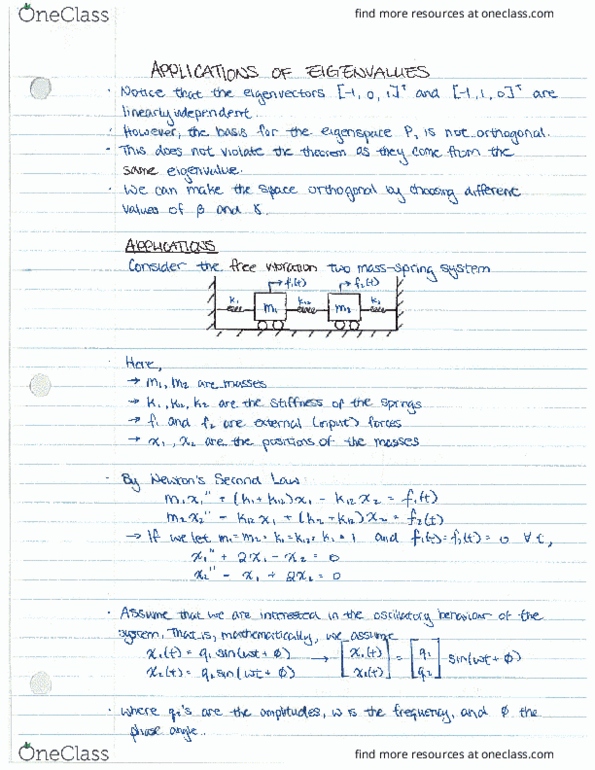 OneClass
find more resources at oneclass.com
APPLICATIONS OF EIGENVALUES
· Notice that the eigenvectors [-1, 0, 1]ᵀ and [-1, 1, 0]ᵀ are
linearly independent.
· However, the basis for the eigenspace P, is not orthogonal.
· This does not violate the theorem as they come from the
same eigenvalue.
· We can make the space orthogonal by choosing different
values of β and γ.
APPLICATIONS
Consider the free vibration two mass-spring system
→ f₁(t) → f₂(t)
k₁ m₁ k₁₂ m₂ k₂
Here,
→ m₁, m₂ are masses
→ k₁, k₁₂, k₂ are the stiffness of the springs
→ f₁ and f₂ are external (input) forces
→ x₁, x₂ are the positions of the masses
· By Newton's Second Law:
m₁x₁'' + (k₁+k₁₂)x₁ - k₁₂x₂ = f₁(t)
m₂x₂'' - k₁₂x₁ + (k₂+k₁₂)x₂ = f₂(t)
→ If we let m₁=m₂=k₁=k₁₂=k₂=1 and f₁(t)=f₂(t)=0 ∀t,
x₁'' + 2x₁ - x₂ = 0
x₂'' - x₁ + 2x₂ = 0
· Assume that we are interested in the oscillatory behaviour of the
system. That is, mathematically, we assume
x₁(t) = q₁ sin(ωt + φ) → [x₁(t)] = [q₁] sin(ωt + φ)
x₂(t) = q₂ sin(ωt + φ) [x₂(t)] [q₂]
· where q's are the amplitudes, ω is the frequency, and φ the
phase angle.
OneClass
find more resources at oneclass.com